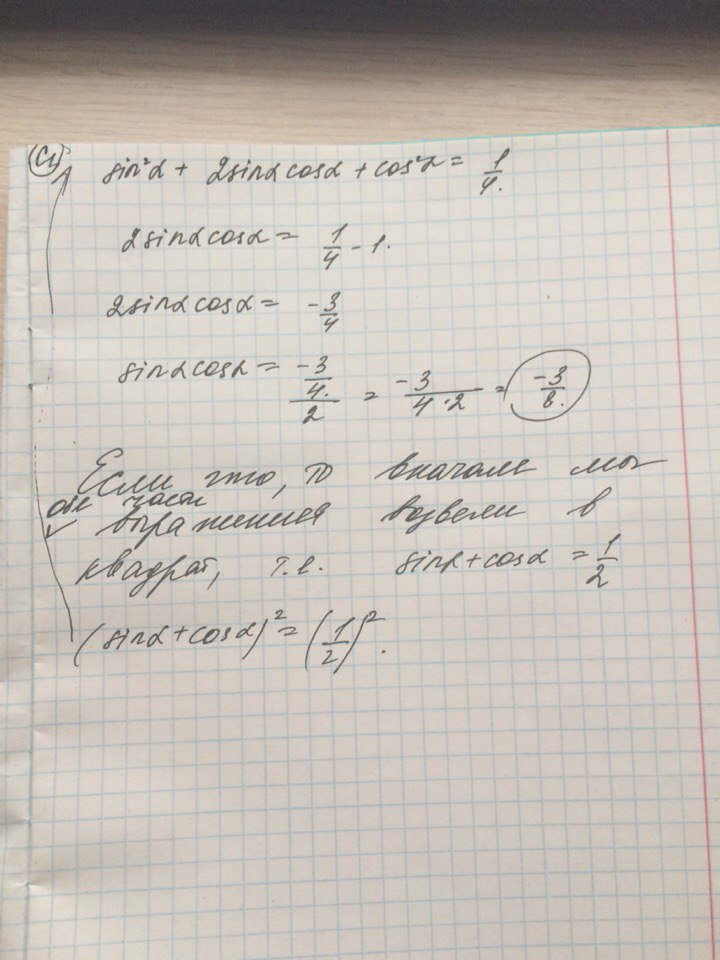 sin²α + 2sinα cosα + cos²α = 1/4.
2sinαcosα = 1/4 - 1.
2sinαcosα = -3/4
sinαcosα = (-3/4.)/2 = -3/(4·2) = -3/8.
Если что, то вначале мы
обе части
выражения возвели в
квадрат, т.е. sinα + cosα = 1/2
(sinα + cosα)² = (1/2)².